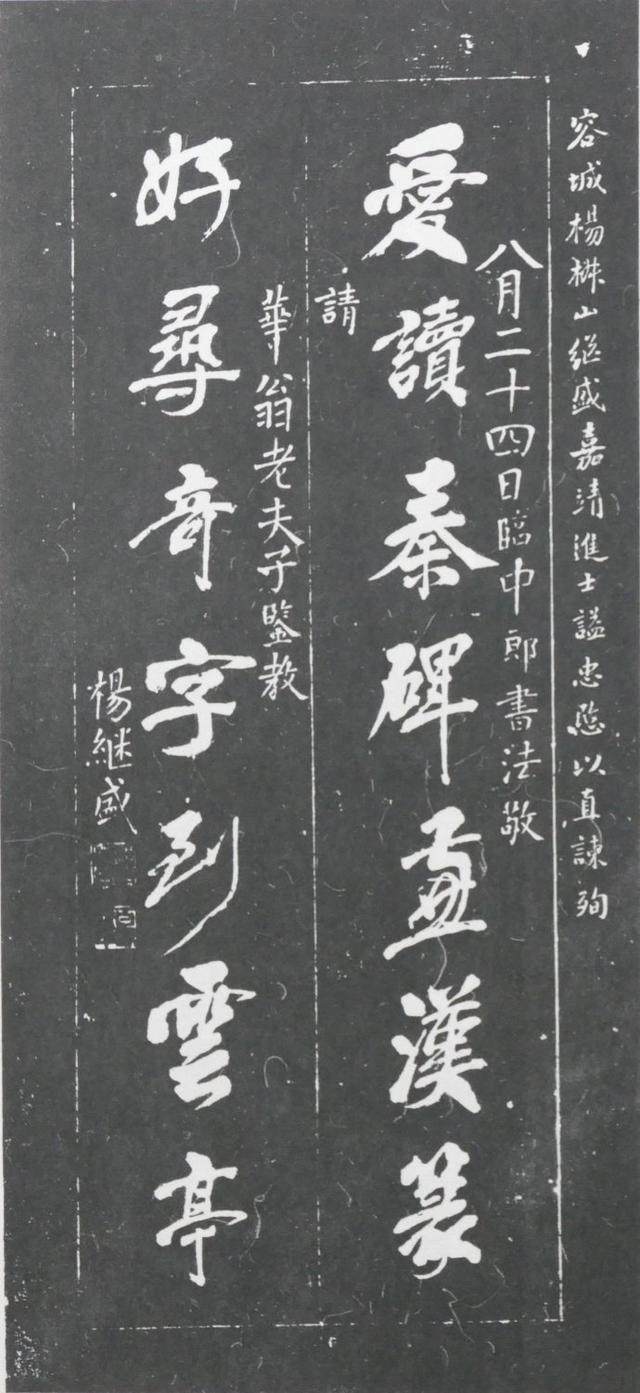 容城楊椒山继盛嘉靖進士謚忠愍以直諫殉
愛讀秦碑畫漢篆
八月二十四日臨中郎書法敬
請
華翁老夫子鑒教
好尋奇字到雲亭
楊継盛